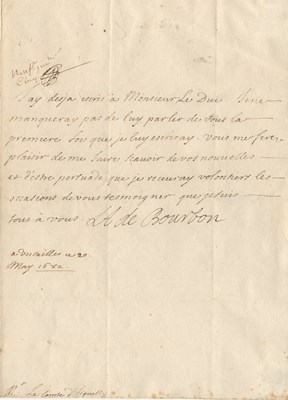 J'ay deja ecrit à Monsieur Le Duc Je ne
manqueray pas de luy parler de vous la
premiere fois que je luy escriray. vous me feres
plaisir de me faire scauoir de vos nouuelles
et d'estre persuadé que je receuray volontiers les
occasions de vous tesmoigner que je suis
tout à vous. de Bourbon
a versailles ce 20
May 1682
Mr. Le Comte